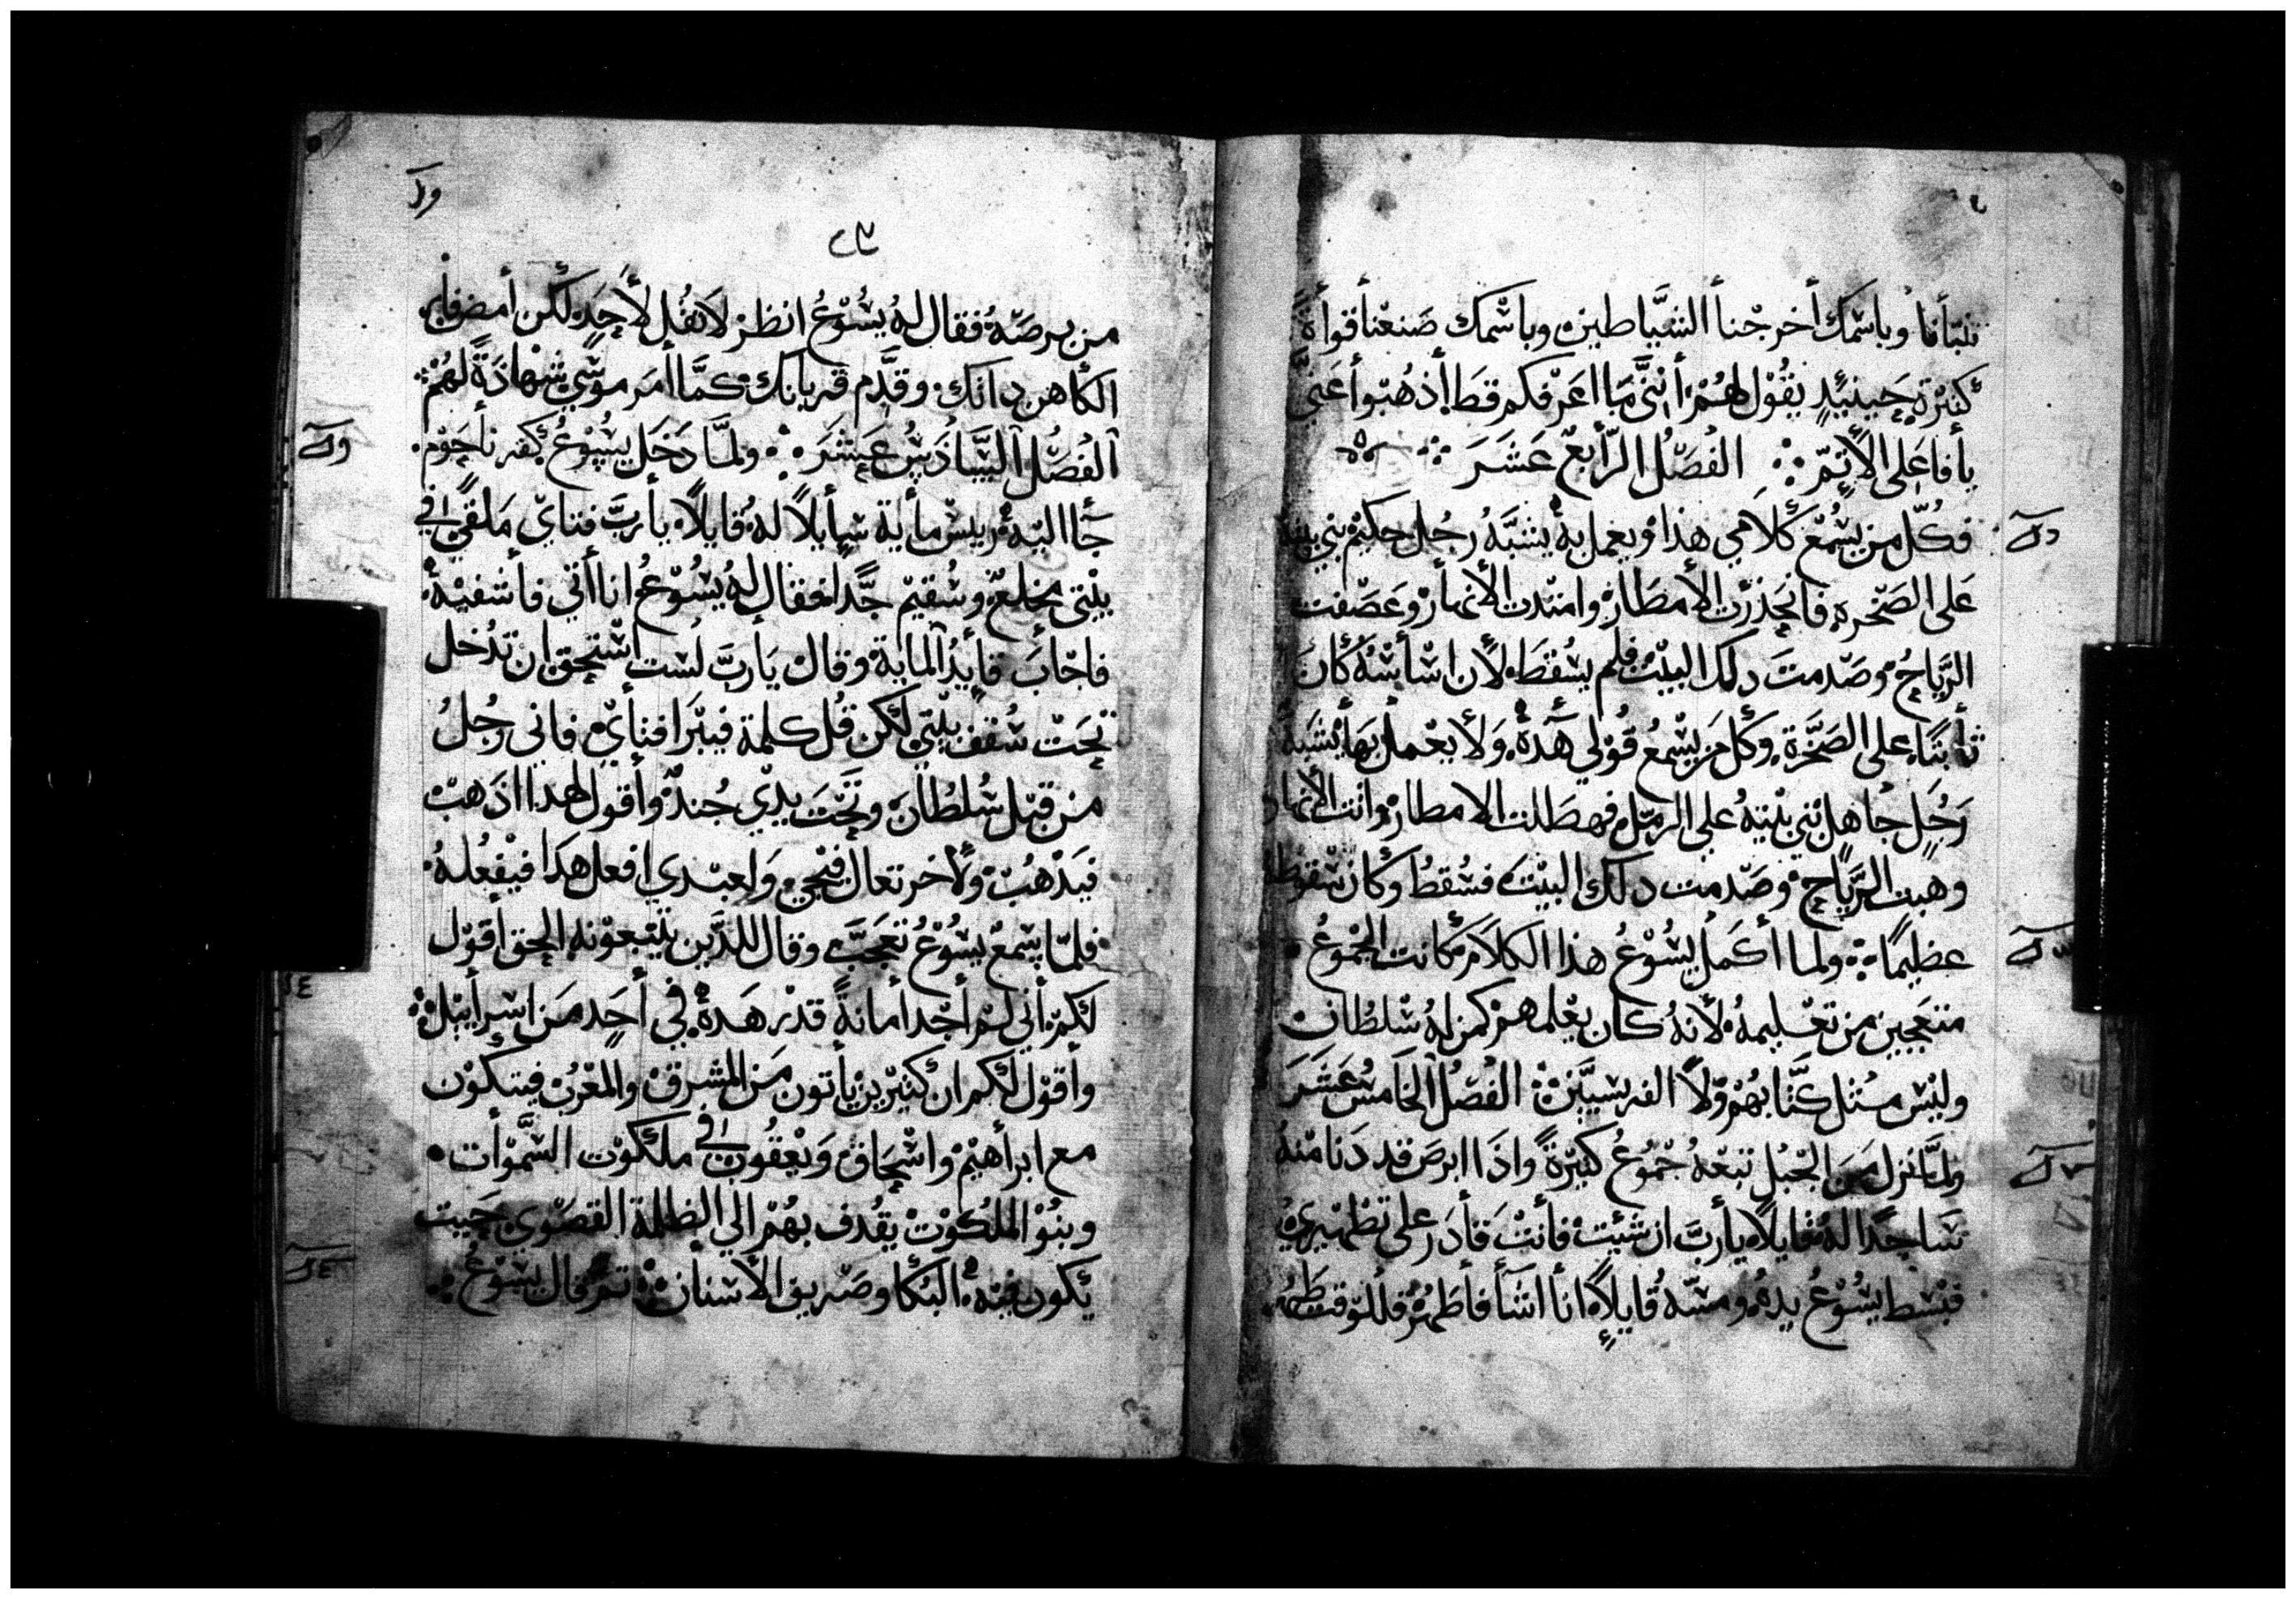 تنبأنا وباسمك أخرجنا الشياطين وباسمك صنعنا قواة
كثيرة حينيئد يقول لهم أنني ما اعرفكم قط أذهبوا عني
يا فاعلي الأتم الفصل الرابع عشر
فكل من يسمع كلامي هذا ويعمل به يشبه رجل حكيم بني بيته
على الصخره فانحدرت الأمطار وامتدت الأنهار وعصفت
الرياح وصدمت دلك البيت فلم يسقط لأن اساسه كان
ثابتا على الصخرة وكل من يسمع قولي هده ولا يعمل بها يشبه
رجل جاهل بني بيته علي الرمل فهطلت الامطار واتت الأنهار
وهبت الرياح وصدمت دلك البيت فسقط وكان سقوطه
عظيما ولما أكمل يسوع هذا الكلام كانت الجموع
متعجبين من تعليمه لأنه كان يعلمهم كمن له سلطان
وليس مثل كتابهم ولا الفريسيين الفصل الخامس عشر
ولما نزل من الجبل تبعه جموع كثيرة واذا ابرص قد دنا منه
ساجدا له قايلا يا رب ان شيت فأنت قادر على تطهيري
فبسط يسوع يده ومسه قايلا انا اشأ فأطهر فللوقت طهر
من برصه فقال له يسوع انظر لا تقل لأحد لكن أمض فأر
الكاهن داتك وقدم قربانك كما أمر موسي شهادة لهم
الفصل السادس عشر ولما دخل يسوع كفرناحوم
جا اليه رييس مأية سأيلا له قايلا يا رب فتاي ملقي في
بيتي مخلع وسقيم جدا فقال له يسوع انا أتي فأشفيه
فاجاب قأيد الماية وقال يا رب لست استحق ان تدخل
تحت سقف بيتي لكن قل كلمة فيبرا فتاي فاني رجل
من قبل سلطان وتحت يدي جند وأقول لهدا اذهب
فيذهب ولأخر تعال فيجي ولعبدي افعل هدا فيفعله
فلما سمع يسوع تعجب وقال للدين يتبعونه الحق أقول
لكم أني لم أجد أمانة قدر هده في أحد من اسراييل
وأقول لكم ان كثيرين يأتون من المشرق والمغرب فيتكون
مع ابراهيم واسحاق ويعقوب في ملكوت السموات
وبنو الملكوت يقدف بهم الي الظلمة القصوي حيت
يكون فيه البكا وصرير الأسنان تم قال يسوع